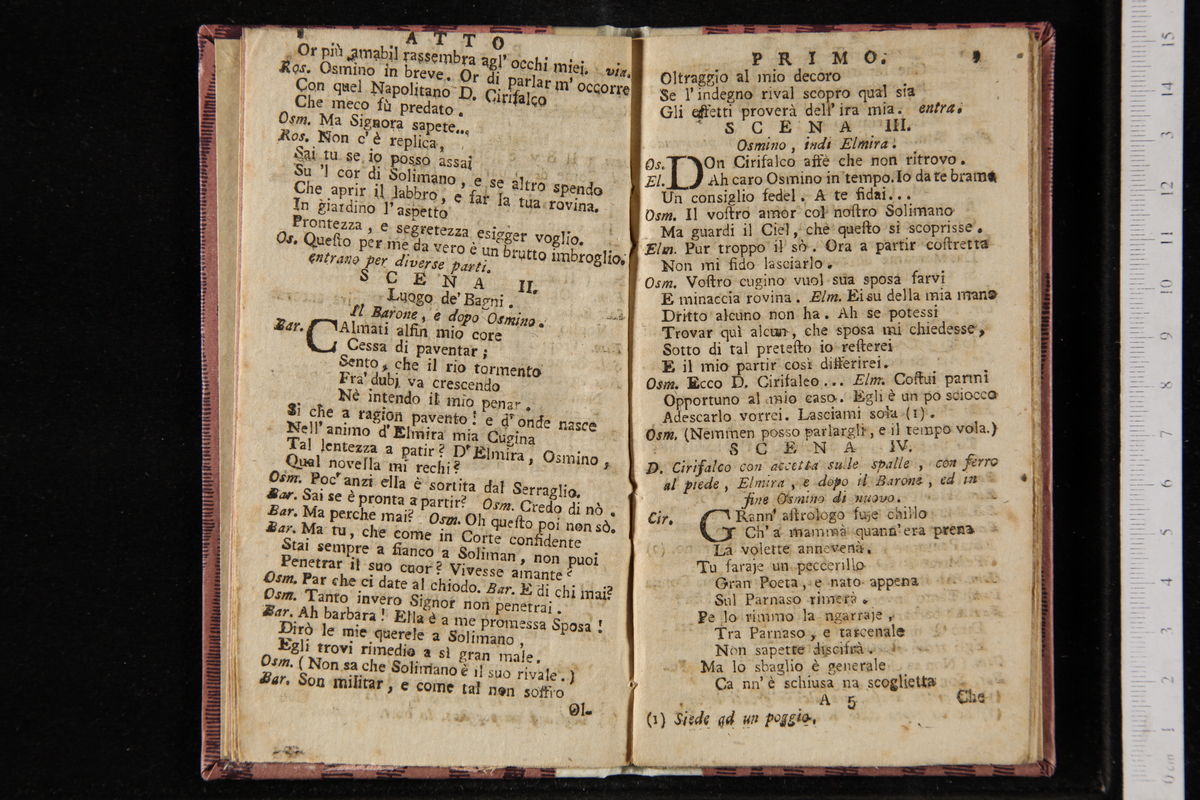 ATTO
Or più amabil rassembra agl' occhi miei. via.
Ros. Osmino in breve. Or di parlar m' occorre
Con quel Napolitano D. Cirifalco
Che meco fù predato.
Osm. Ma Signora sapete...
Ros. Non c'è replica,
Sai tu se io posso assai
Su 'l cor di Solimano, e se altro spendo
Che aprir il labbro, e far la tua rovina.
In giardino l'aspetto
Prontezza, e segretezza esigger voglio.
Os. Queſto per me da vero è un brutto imbroglio.
entrano per diverse parti.
SCENA II.
Luogo de' Bagni.
Il Barone, e dopo Osmino.
Bar. CAlmati alfin mio core
Cessa di paventar;
Sento, che il rio tormento
Fra' dubj va crescendo
Nè intendo il mio penar.
Sì che a ragion pavento! e d' onde nasce
Nell' animo d'Elmira mia Cugina
Tal lentezza a patir? D' Elmira, Osmino,
Qual novella mi rechi?
Osm. Poc' anzi ella è sortita dal Serraglio.
Bar. Sai se è pronta a partir? Osm. Credo di nò.
Bar. Ma perche mai? Osm. Oh queſto poi non sò.
Bar. Ma tu, che come in Corte confidente
Stai sempre a fianco a Soliman, non puoi
Penetrar il suo cuor? Vivesse amante?
Osm. Par che ci date al chiodo. Bar. E di chi mai?
Osm. Tanto invero Signor non penetrai.
Bar. Ah barbara! Ella è a me promessa Sposa!
Dirò le mie querele a Solimano,
Egli trovi rimedio a sì gran male.
Osm. (Non sa che Solimano è il suo rivale.)
Bar. Son militar, e come tal non soffro
Ol-
PRIMO. 9
Oltraggio al mio decoro
Se l'indegno rival scopro qual sia
Gli effetti proverà dell' ira mia. entra.
SCENA III.
Osmino, indi Elmira.
Os. DOn Cirifalco affè che non ritrovo.
El. Ah caro Osmino in tempo. Io da te bramo
Un consiglio fedel. A te fidai...
Osm. Il voſtro amor col noſtro Solimano
Ma guardi il Ciel, che queſto si scoprisse.
Elm. Pur troppo il sò. Ora a partir coſtretta
Non mi fido lasciarlo.
Osm. Voſtro cugino vuol sua sposa farvi
E minaccia rovina. Elm. Ei su della mia mano
Dritto alcuno non ha. Ah se potessi
Trovar quì alcun, che sposa mi chiedesse,
Sotto di tal preteſto io reſterei
E il mio partir così differirei.
Osm. Ecco D. Cirifalco... Elm. Coſtui parmi
Opportuno al mio caso. Egli è un po sciocco
Adescarlo vorrei. Lasciami sola (1).
Osm. (Nemmen posso parlargli, e il tempo vola.)
SCENA IV.
D. Cirifalco con accetta sulle spalle, con ferro
al piede, Elmira, e dopo il Barone, ed in
fine Osmino di nuovo.
Cir. GRann' aſtrologo fuje chillo
Ch' a mammà quann' era prena
La volette annevenà.
Tu faraje un peccerillo
Gran Poeta, e nato appena
Sul Parnaso rimerà.
Pe lo rimmo la ngarraje,
Tra Parnaso, e tarcenale
Non sapette discifrà.
Ma lo sbaglio è generale
Ca nn' è schiusa na scoglietta
A 5 Che
(1) Siede ad un poggio.